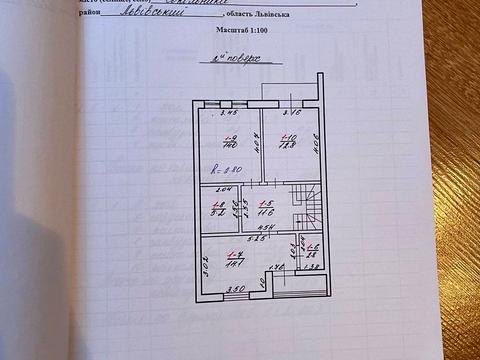 район Львівський, область Львівська
Масштаб 1:100
2й поверх
3.45
3.16
1-9
14.0
4.07
1-10
12.8
4.06
h=2.80
2.04
1-8
5.2
2.56
2.55
1-5
11.6
4.54
5.25
3.02
1-7
14.1
2.03
2.04
1-6
2.8
1.38
1.76
3.50